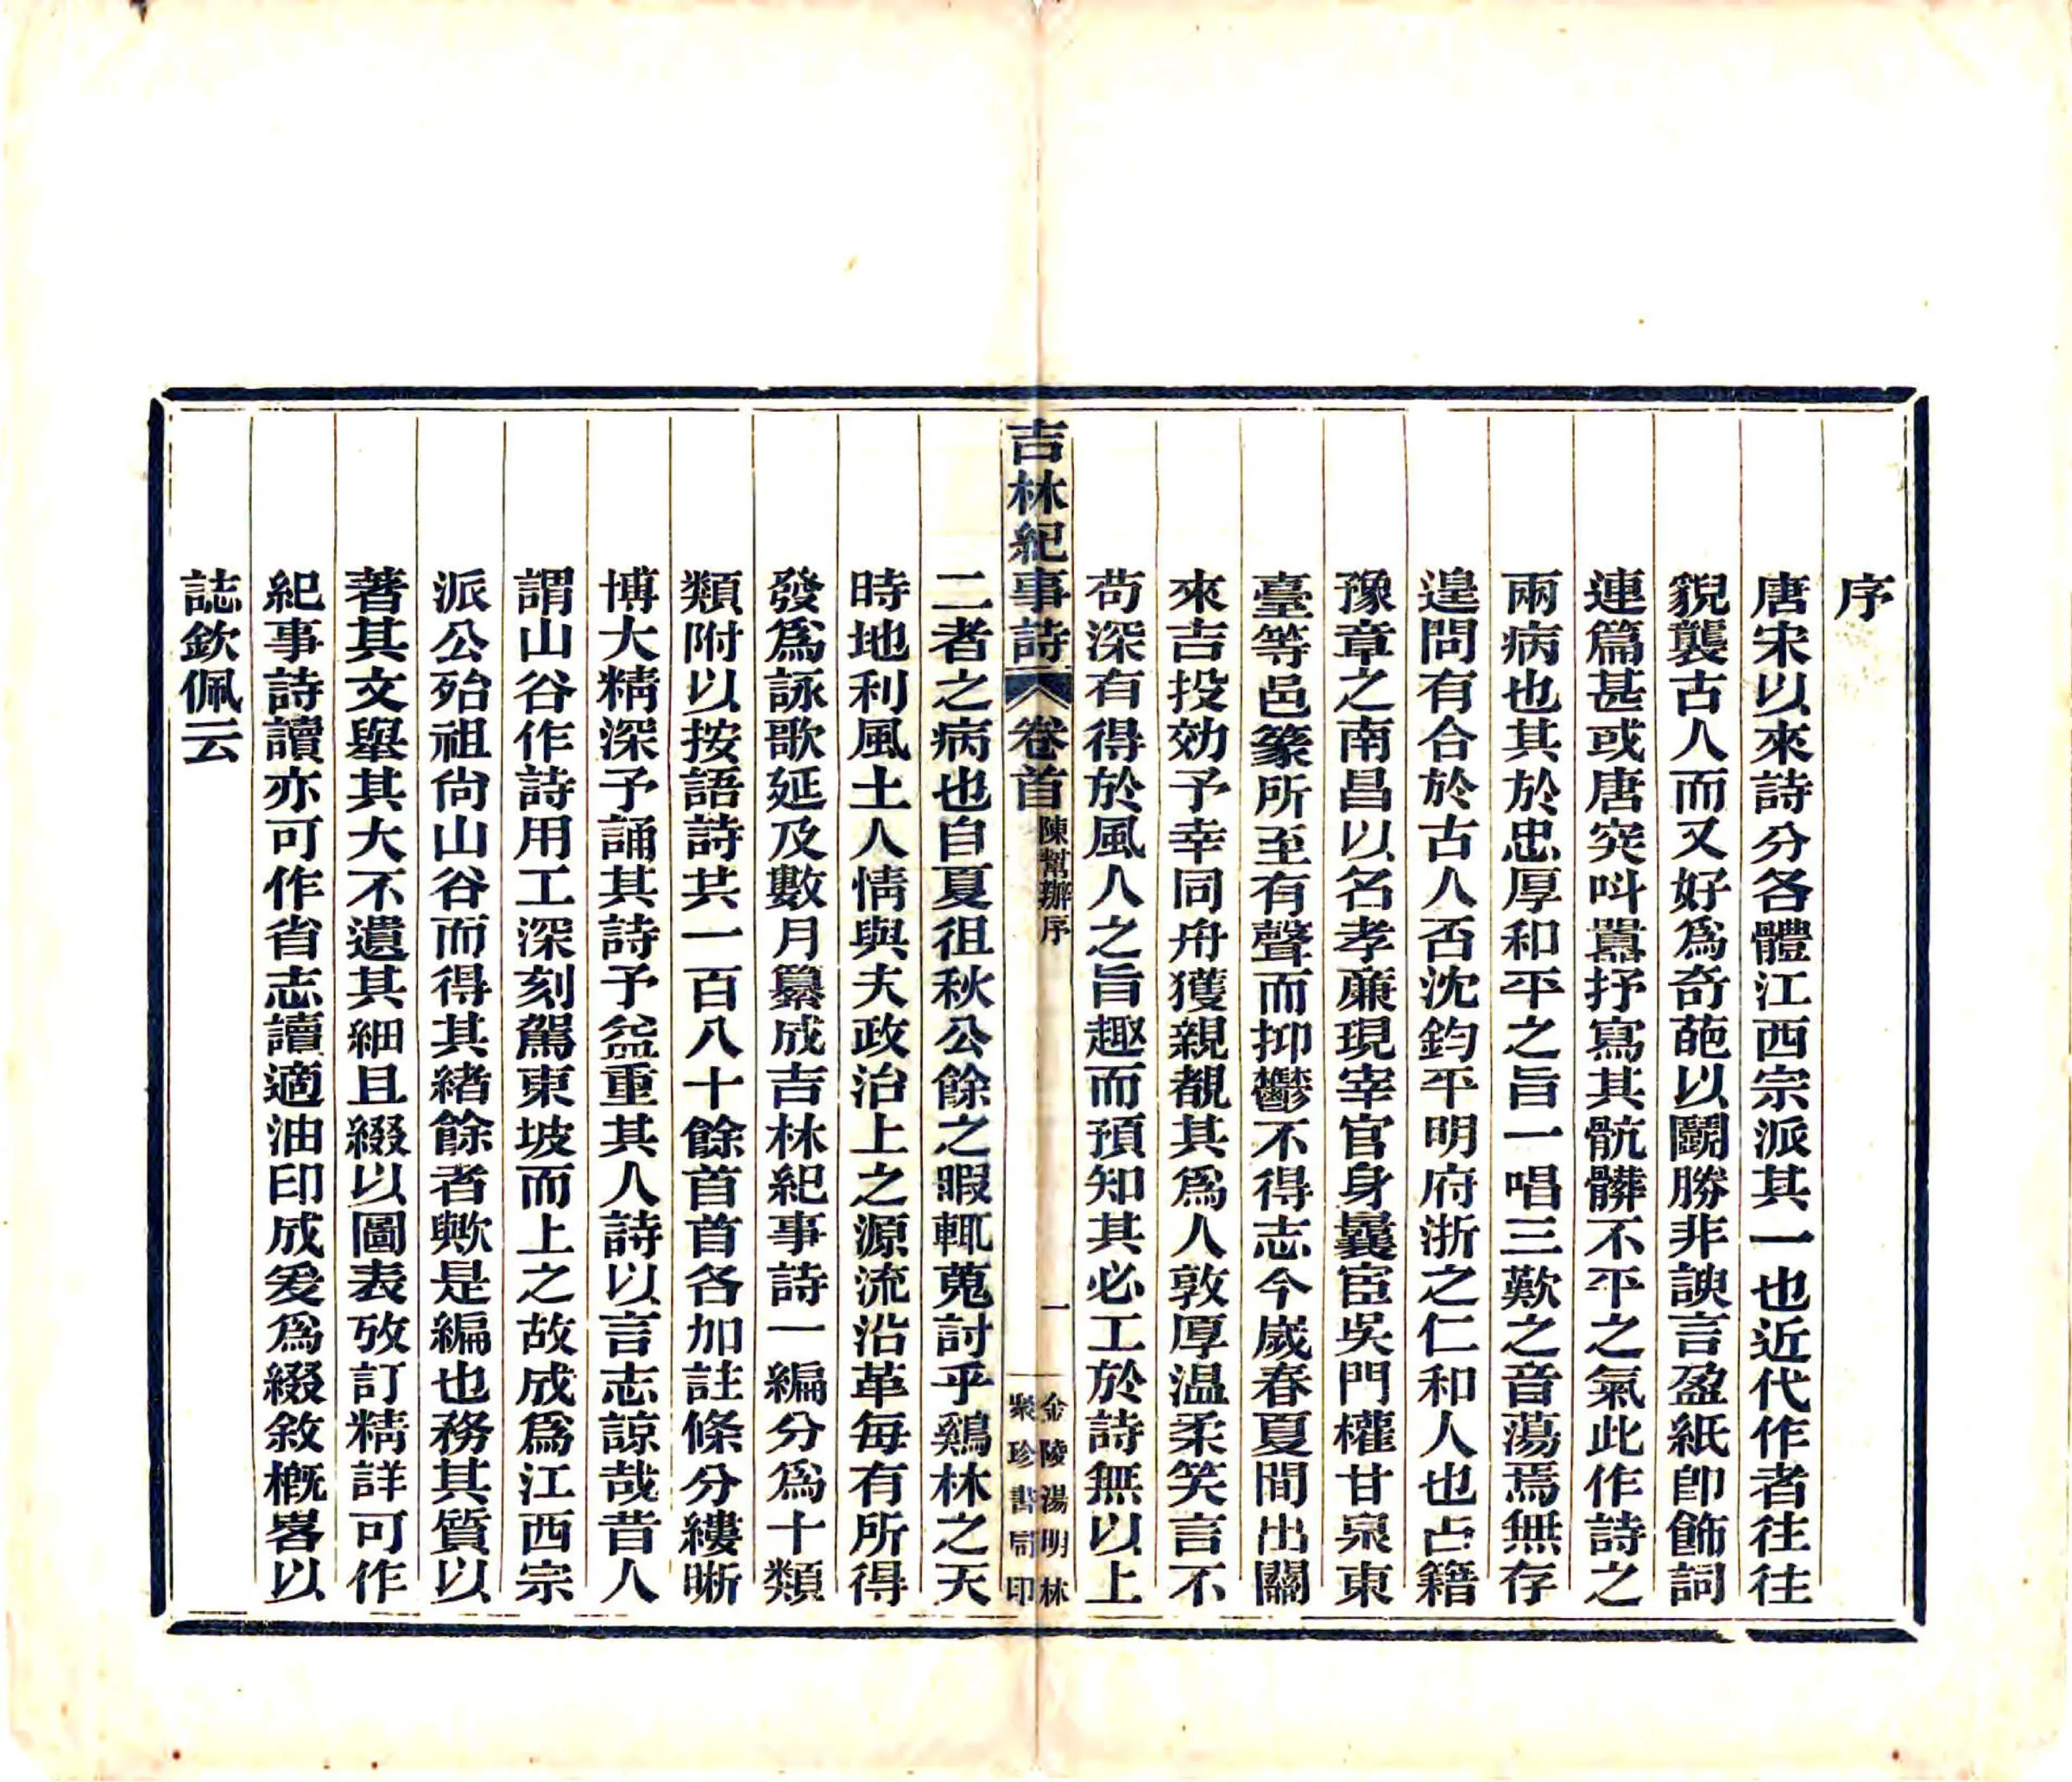 序
唐宋以來詩分各體江西宗派其一也近代作者往往
貌襲古人而又好爲奇葩以鬬勝非諛言盈紙卽飾詞
連篇甚或唐突呌囂抒寫其骯髒不平之氣此作詩之
兩病也其於忠厚和平之旨一唱三歎之音蕩焉無存
遑問有合於古人否沈鈞平明府浙之仁和人也占籍
豫章之南昌以名孝廉現宰官身曩宦吳門權甘泉東
臺等邑篆所至有聲而抑鬱不得志今歲春夏間出關
來吉投効予幸同舟獲親覩其爲人敦厚温柔笑言不
苟深有得於風人之旨趣而預知其必工於詩無以上
吉林紀事詩 卷首 陳幫辦序 一 金陵湯明林聚珍書局印
二者之病也自夏徂秋公餘之暇輒蒐討乎鷄林之天
時地利風土人情與夫政治上之源流沿革每有所得
發爲詠歌延及數月纂成吉林紀事詩一編分爲十類
類附以按語詩共一百八十餘首首各加註條分縷晰
博大精深予誦其詩予益重其人詩以言志諒哉昔人
謂山谷作詩用工深刻駕東坡而上之故成爲江西宗
派公殆祖尙山谷而得其緖餘者歟是編也務其質以
著其文舉其大不遺其細且綴以圖表攷訂精詳可作
紀事詩讀亦可作省志讀適油印成爰爲綴敘槪畧以
誌欽佩云